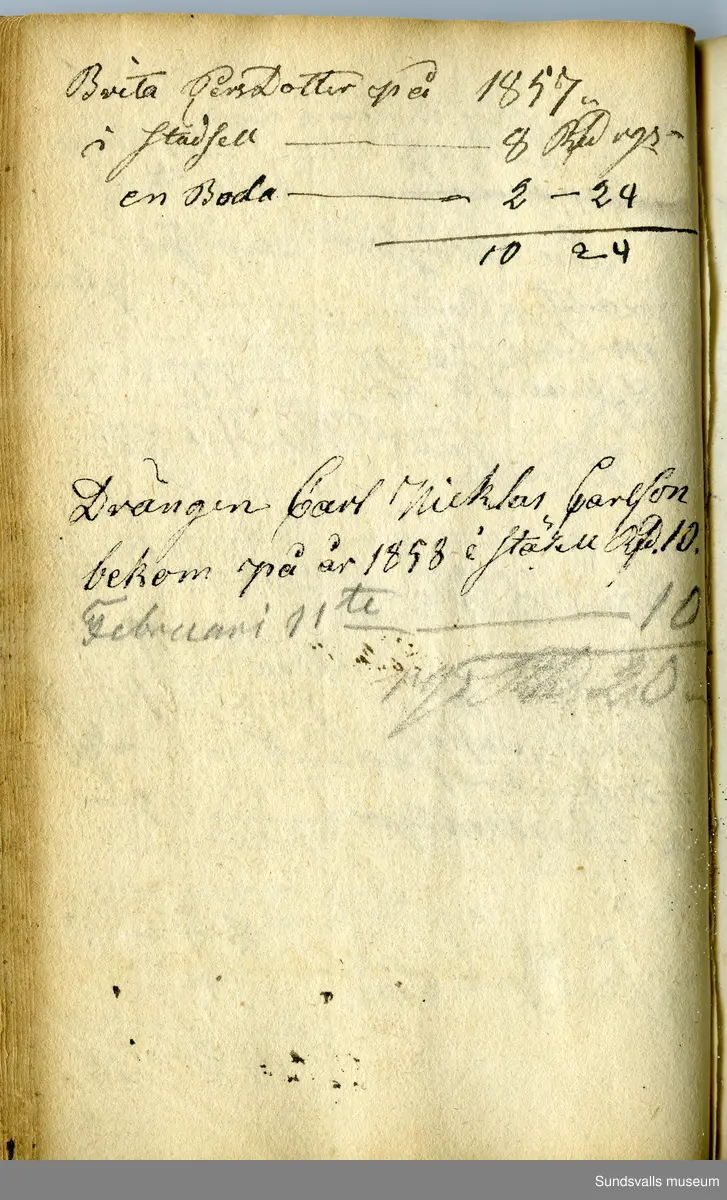 Brita PersDotter på 1857
i Städsell 8 Rd rgs
en Boda 2 - 24
10 24
Drängen Carl Nicklas Carlson
bekom på år 1858 i städsell Rd. 10.
Februari 11te 10
20
Sundsvalls museum